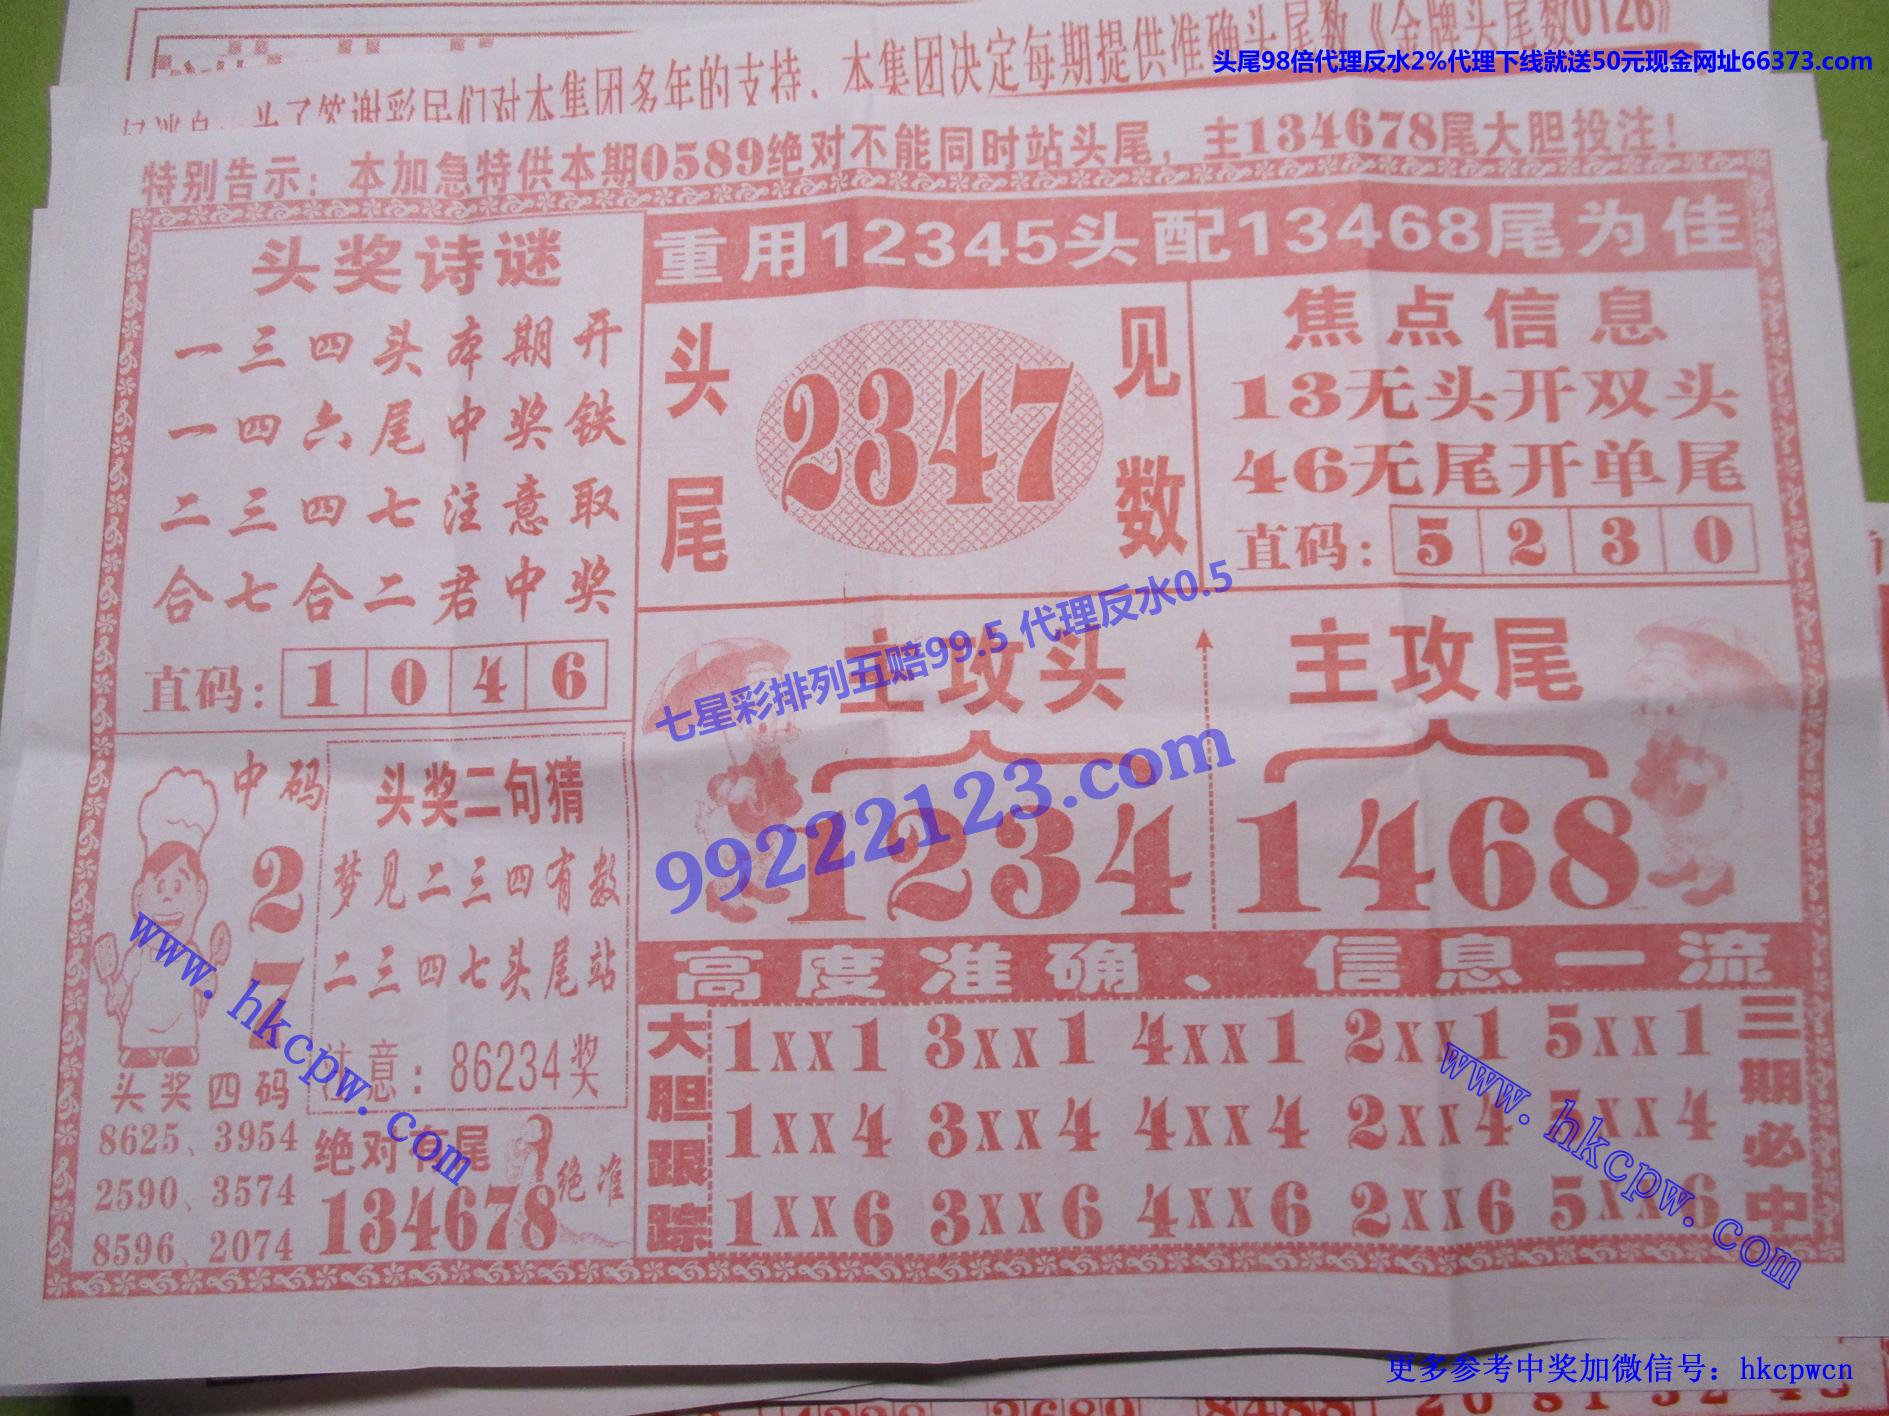 本集团决定每期提供准确头尾数《金牌头尾数0126》
为了答谢彩民们对本集团多年的支持、
头尾98倍代理反水2%代理下线就送50元现金网址66373.com
特别告示：本加急特供本期0589绝对不能同时站头尾，主134678尾大胆投注！
头奖诗谜
一三四头本期开
一四六尾中奖铁
二三四七注意取
合七合二君中奖
直码：1 0 4 6
重用12345头配13468尾为佳
头尾
2347
见数
焦点信息
13无头开双头
46无尾开单尾
直码：5 2 3 0
七星彩排列五赔99.5 代理反水0.5
99222123.com
主攻头
1234
主攻尾
1468
中码
2
7
头奖二句猜
梦见二三四有数
二三四七头尾站
注意：86234奖
www.hkcpw.com
头奖四码
8625、3954
2590、3574
8596、2074
绝对有尾
134678
绝准
高度准确、信息一流
大胆跟踪
1XX1 3XX1 4XX1 2XX1 5XX1
1XX4 3XX4 4XX4 2XX4 5XX4
1XX6 3XX6 4XX6 2XX6 5XX6
三期必中
www.hkcpw.com
更多参考中奖加微信号：hkcpwcn